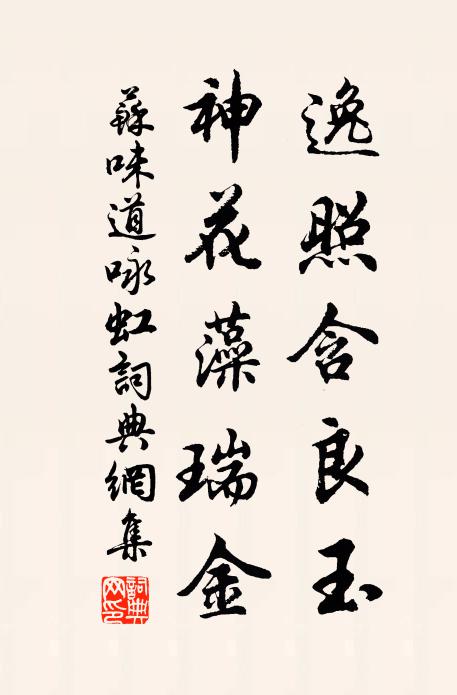 逸照含良玉
神花藻瑞金
蘇味道咏虹詞典網集
詞典网印